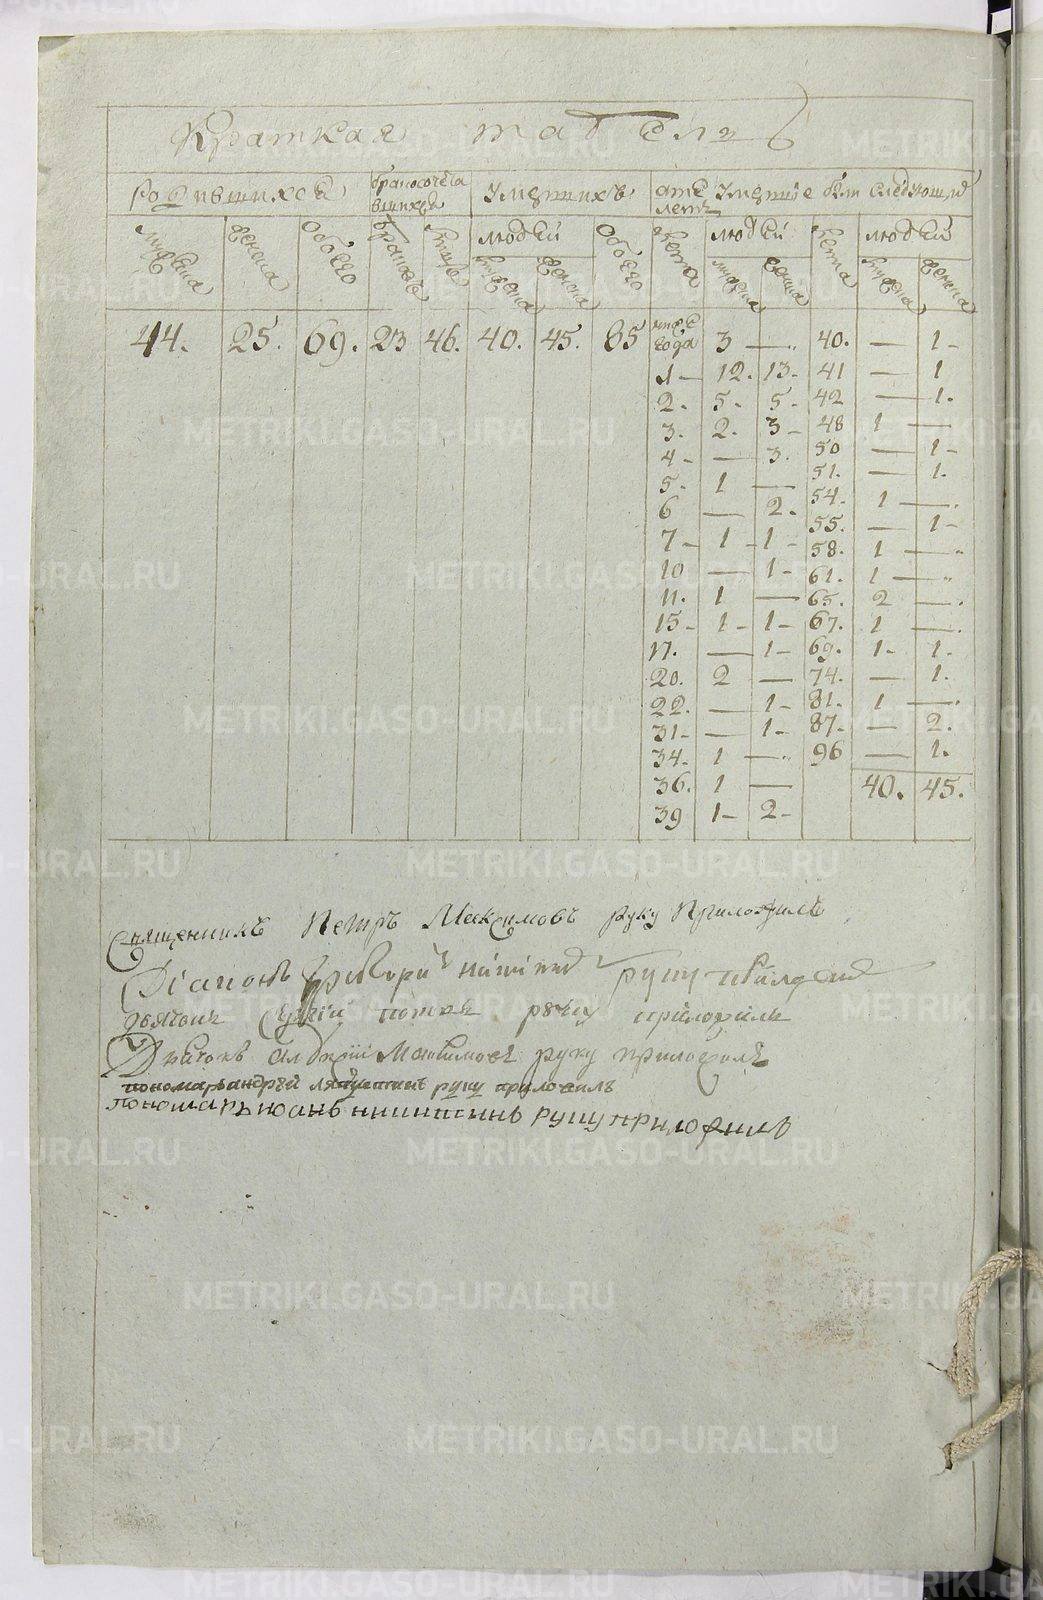 Краткая табель
родившихся
бракосочета вшихся
умершихъ
отъ летъ умершие были следующие
мужеска
женска
обоего
браковъ
людей
мужеска
женска
обоего
лета
людей
мужеска
женска
лета
людей
мужеска
женска
44. 25. 69. 23 46. 40. 45. 85
года 3 — 40. — 1-
1- 12. 13- 41 — 1
2. 5. 5- 42 — 1.
3. 2. 3- 48 1 —
4- — 3. 50 — 1-
5. 1 — 51. — 1.
6 — 2. 54. 1 —
7- 1- 1- 55. — 1-
10 — 1- 58. 1 —
11. 1 — 61. 1 —
15- 1- 1- 65. 2 —
17. — 1- 67. 1 —
20. 2 — 69. 1- 1.
22. — 1- 74. — 1.
31- — 1- 81. 1 —
34. 1 — 87. — 2.
36. 1 — 96 — 1.
39 1- 2- 40. 45.
Священникъ Петръ Максимовъ руку приложилъ
Діаконъ Григори Никитинъ руку приложилъ
дьячокъ Сергіи руку приложилъ
Дьячокъ Алексіи Максимовъ руку приложилъ
пономарь андрей руку приложилъ
Пономарь иоаннъ никитинъ руку приложилъ
METRIKI.GASO-URAL.RU